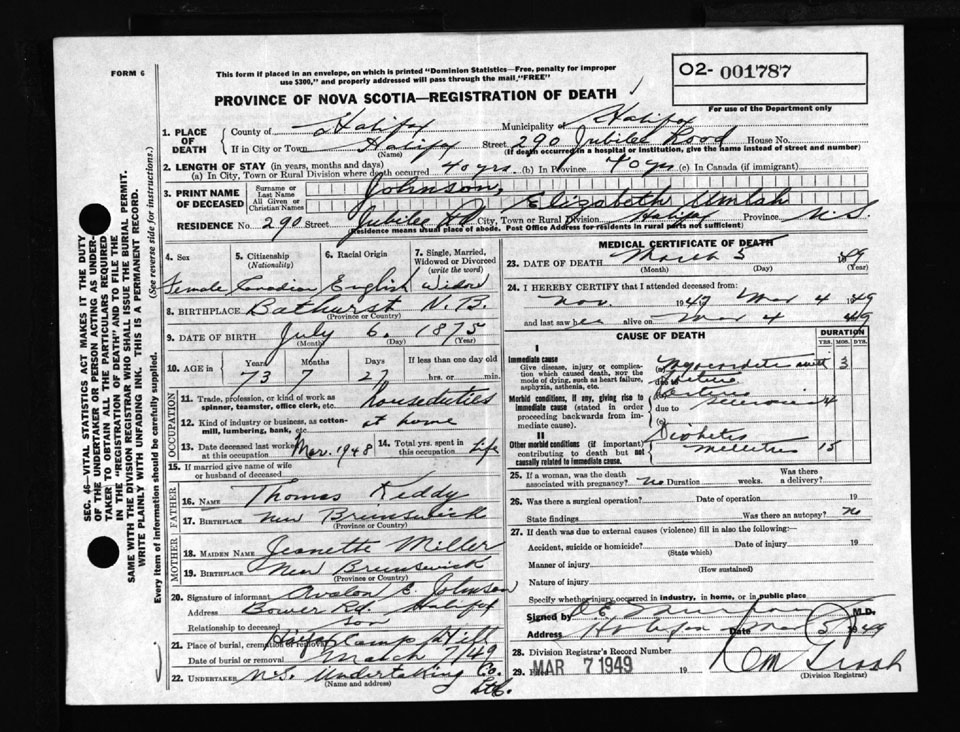 FORM 6
This form if placed in an envelope, on which is printed "Dominion Statistics—Free, penalty for improper
use $300," and properly addressed will pass through the mail, "FREE"
O2- 001787
For use of the Department only
PROVINCE OF NOVA SCOTIA—REGISTRATION OF DEATH
1. PLACE OF DEATH
County of Halifax Municipality of Halifax
If in City or Town Halifax Street 290 Jubilee Road House No.
(Name) (If death occurred in a hospital or institution, give the name instead of street and number)
2. LENGTH OF STAY (in years, months and days)
(a) In City, Town or Rural Division where death occurred 40 yrs. (b) In Province 70 yrs (c) In Canada (if immigrant)
3. PRINT NAME OF DECEASED
Surname or Last Name Johnson
All Given or Christian Names Elizabeth Umlah
RESIDENCE No. 290 Street Jubilee Rd City, Town or Rural Division Halifax Province N.S.
(Residence means usual place of abode. Post Office Address for residents in rural parts not sufficient)
4. Sex
Female
5. Citizenship (Nationality)
Canadian
6. Racial Origin
English
7. Single, Married, Widowed or Divorced (write the word)
Widow
8. BIRTHPLACE Bathurst N.B.
(Province or Country)
9. DATE OF BIRTH July 6, 1875
(Month) (Day) (Year)
10. AGE in Years Months Days If less than one day old
73 7 27 hrs. or min.
OCCUPATION
11. Trade, profession, or kind of work as spinner, teamster, office clerk, etc. Houseduties
12. Kind of industry or business, as cotton-mill, lumbering, bank, etc. at home
13. Date deceased last worked at this occupation Mar. 1948
14. Total yrs. spent in this occupation Life
15. If married give name of wife or husband of deceased
FATHER
16. NAME Thomas Keddy
17. BIRTHPLACE New Brunswick
(Province or Country)
MOTHER
18. MAIDEN NAME Jeanette Miller
19. BIRTHPLACE New Brunswick
(Province or Country)
20. Signature of informant Avalon E. Johnson
Address Bower Rd. Halifax
Relationship to deceased Son
21. Place of burial, cremation or removal Camp Hill
Date of burial or removal March 7/49
22. UNDERTAKER N.S. Undertaking Co. Ltd.
(Name and address)
MEDICAL CERTIFICATE OF DEATH
23. DATE OF DEATH March 5 1949
(Month) (Day) (Year)
24. I HEREBY CERTIFY that I attended deceased from:
Nov. 1947 Mar 4 1949
and last saw her alive on Mar 4 49
CAUSE OF DEATH
DURATION
YRS. MOS. DYS.
I
Immediate cause
Give disease, injury or complication which caused death, NOT the mode of dying, such as heart failure, asphyxia, asthenia, etc.
(a) Myocarditis with 3
due to
Morbid conditions, if any, giving rise to immediate cause (stated in order proceeding backwards from immediate cause)
due to 4
II
Other morbid conditions (if important) contributing to death but not causally related to immediate cause.
Diabetes
Mellitus 15
25. If a woman, was the death associated with pregnancy? No Duration weeks. Was there a delivery?
26. Was there a surgical operation? Date of operation 19
State findings Was there an autopsy? No
27. If death was due to external causes (violence) fill in also the following:—
Accident, suicide or homicide? Date of injury 19
(State which)
Manner of injury
(How sustained)
Nature of injury
Specify whether injury occurred in industry, in home, or in public place
Signed by M.D.
Address Halifax Date Mar 5 1949
28. Division Registrar's Record Number
29. MAR 7 1949 19
(Division Registrar)
SEC. 46—VITAL STATISTICS ACT MAKES IT THE DUTY
OF THE UNDERTAKER OR PERSON ACTING AS UNDER-
TAKER TO OBTAIN ALL THE PARTICULARS REQUIRED
IN THE "REGISTRATION OF DEATH" AND TO FILE THE
SAME WITH THE DIVISION REGISTRAR WHO SHALL ISSUE THE BURIAL PERMIT.
WRITE PLAINLY WITH UNFADING INK. THIS IS A PERMANENT RECORD.
Every item of information should be carefully supplied. (See reverse side for instructions.)